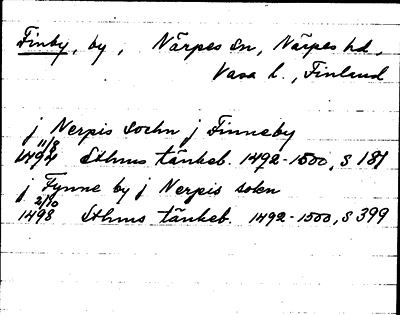 Finby, by, Närpes sn, Närpes hd,
Vasa l., Finland
j Nerpis sochn j Finneby
11/8
1494 Sthms tänkeb. 1492-1500, s 187
j Fynne by j Nerpis sokn
2/10
1498 Sthms tänkeb. 1492-1500, s 399